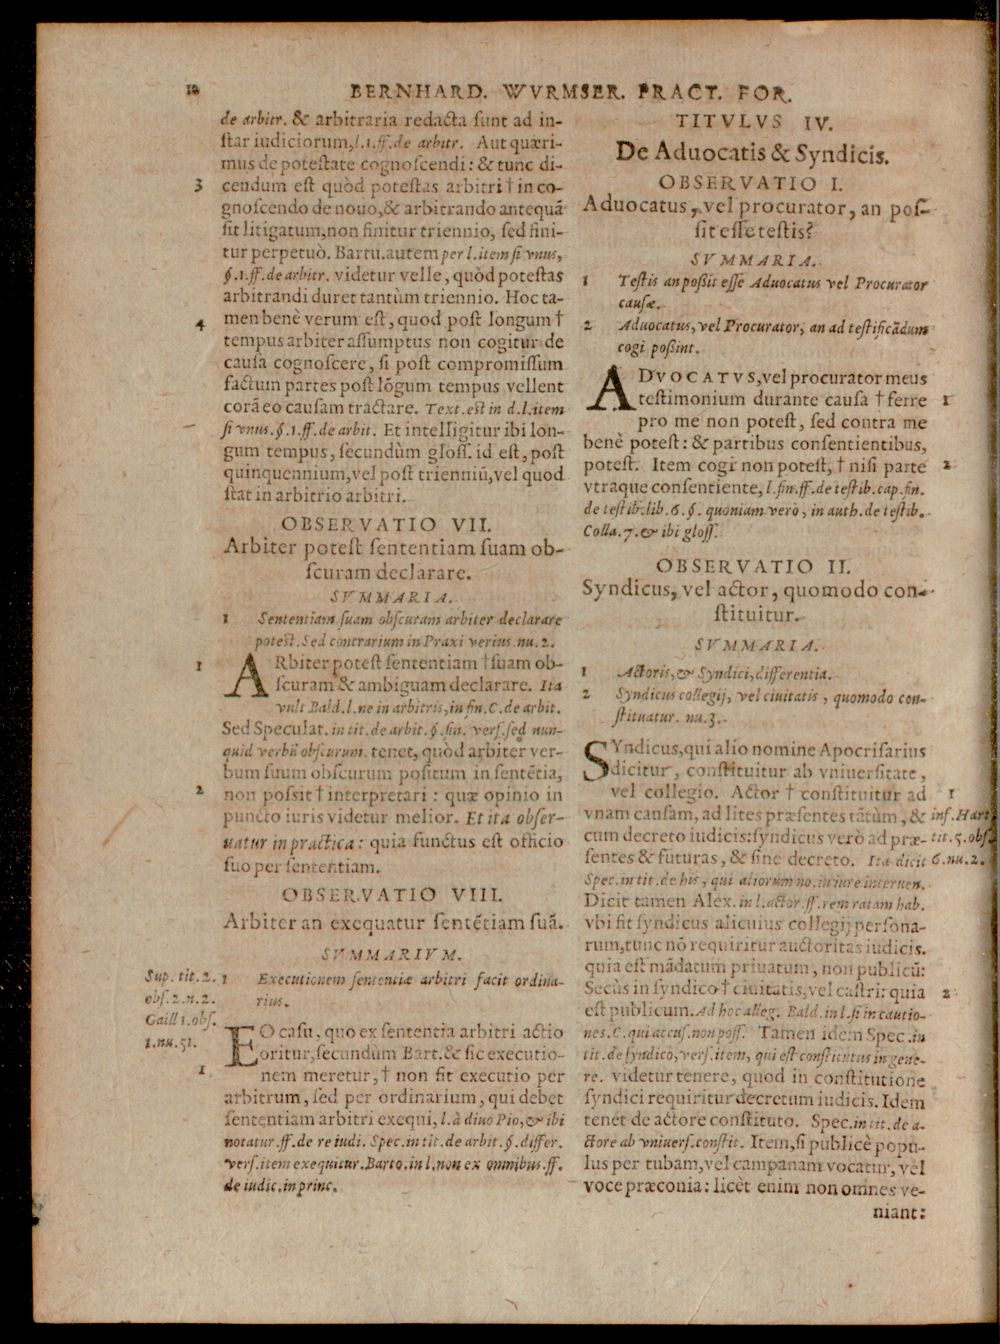 12 BERNHARD. WVRMSER. PRACT. FOR.
de arbitr. & arbitraria redacta ſunt ad in-
ſtar iudiciorum, l.1.ff.de arbitr. Aut quæri-
mus de poteſtate cognoſcendi: & tunc di-
3 cendum eſt quòd poteſtas arbitri † in co-
gnoſcendo de nouo,& arbitrando antequã
ſit litigatum,non finitur triennio, ſed fini-
tur perpetuò. Bartu.autem per l.item ſi vnus,
§.1.ff.de arbitr. videtur velle, quòd poteſtas
arbitrandi duret tantùm triennio. Hoc ta-
4 men benè verum eſt, quod poſt longum †
tempus arbiter aſſumptus non cogitur de
cauſa cognoſcere, ſi poſt compromiſſum
factum partes poſt lõgum tempus vellent
corã eo cauſam tractare. Text.est in d.l.item
ſi vnus.§.1.ff.de arbit. Et intelligitur ibi lon-
gum tempus, ſecundùm gloſſ. id eſt, poſt
quinquennium,vel poſt trienniũ,vel quod
ſtat in arbitrio arbitri.
OBSERVATIO VII.
Arbiter poteſt ſententiam ſuam ob-
ſcuram declarare.
SVMMARIA.
1 Sententiam ſuam obſcuram arbiter declarare
potest. Sed contrarium in Praxi verius.nu.2.
1 ARbiter poteſt ſententiam † ſuam ob-
ſcuram & ambiguam declarare. Ita
vult Bald.l.ne in arbitris,in fin.C.de arbit.
Sed Speculat. in tit.de arbit.§.fin. verſ.ſed nun-
quid verbũ obſcurum. tenet, quòd arbiter ver-
bum ſuum obſcurum poſitum in ſentẽtia,
2 non poſsit † interpretari : quæ opinio in
puncto iuris videtur melior. Et ita obſer-
uatur in practica: quia functus eſt officio
ſuo per ſententiam.
OBSERVATIO VIII.
Arbiter an exequatur ſentẽtiam ſuã.
SVMMARIVM.
Sup. tit. 2.
obſ.2.n.2.
Gaill 1.obſ.
1.nu.51.
1 Executionem ſententiæ arbitri facit ordina-
rius.
EO caſu, quo ex ſententia arbitri actio
oritur,ſecundùm Bart.& ſic executio-
1 nem meretur, † non fit executio per
arbitrum, ſed per ordinarium, qui debet
ſententiam arbitri exequi, l.à diuo Pio,& ibi
notatur.ff.de re iudi. Spec.in tit.de arbit.§.differ.
verſ.item exequitur.Barto.in l.non ex omnibus.ff.
de iudic.in princ.
TITVLVS IV.
De Aduocatis & Syndicis.
OBSERVATIO I.
Aduocatus, vel procurator, an poſ-
ſit eſſe teſtis?
SVMMARIA.
1 Teſtis an poßit eſſe Aduocatus vel Procurator
cauſæ.
2 Aduocatus, vel Procurator, an ad teſtificãdum
cogi poßint.
ADVOCATVS, vel procurator meus
teſtimonium durante cauſa † ferre 1
pro me non poteſt, ſed contra me
benè poteſt: & partibus conſentientibus,
poteſt. Item cogi non poteſt, † niſi parte 2
vtraque conſentiente, l.fin.ff.de teſtib.cap.fin.
de teſtib.lib.6.§. quoniam verò, in auth.de teſtib.
Colla.7.& ibi gloſſ.
OBSERVATIO II.
Syndicus, vel actor, quomodo con-
ſtituitur.
SVMMARIA.
1 Actoris,& Syndici,differentia.
2 Syndicus collegij, vel ciuitatis, quomodo con-
ſtituatur. nu.3.
SYndicus,qui alio nomine Apocriſarius
dicitur, conſtituitur ab vniuerſitate,
vel collegio. Actor † conſtituitur ad 1
vnam cauſam, ad lites præſentes tãtùm, &
cum decreto iudicis:ſyndicus verò ad præ-
ſentes & futuras, & ſine decreto. Ita dicit
inf. Hart
tit.5.obſ.
6.nu.2.
Spec.in tit.de his, qui aliorum no.in iure interuen.
Dicit tamen Alex. in l.actor.ff.rem ratam hab.
vbi fit ſyndicus alicuius collegij perſona-
rum,tunc nõ requiritur auctoritas iudicis.
quia eſt mãdatum priuatum, non publicũ:
Secùs in ſyndico † ciuitatis,vel caſtri: quia 2
eſt publicum. Ad hoc alleg. Bald.in l.ſi in cautio-
nes.C.qui accuſ.non poſſ. Tamen idem Spec.in
tit.de ſyndico,verſ.item, qui eſt conſtitutus in gene-
re. videtur tenere, quod in conſtitutione
ſyndici requiritur decretum iudicis. Idem
tenet de actore conſtituto. Spec.in tit.de a-
ctore ab vniuerſ.conſtit. Item,ſi publicè popu-
lus per tubam,vel campanam vocatur, vel
voce præconia: licèt enim non omnes ve-
niant: